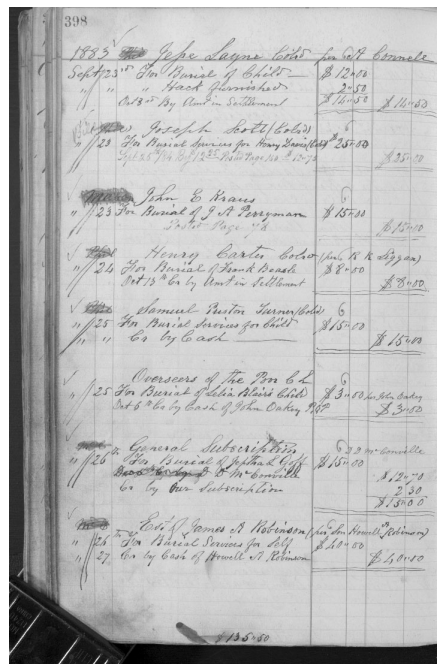 398
1883 Jesse Layne Cold per C A Connell
Sept 23rd For Burial of Child $12.00
" " " Hack Furnished 2-50
Oct 3rd By Amt in Settlement $14-50 $14-50
Joseph Scott (Cold)
" 23 For Burial Services for Henry Davis (Cold) $25-00
$25-00
John E Kraus
" 23 For Burial of J A Perryman $15-00
Page $15-00
Henry Carter Cold (per R R Liggan)
" 24 For Burial of Frank Beasle $8-00
Oct 13th Cr by Amt in Settlement $8-00
Samuel Riston Turner (Cold)
" 25 For Burial Services for Child $15-00
" " Cr by Cash $15-00
Overseers of the Poor C L
" 25 For Burial of Lelia Blairs Child $3-00 per John Oakey
Oct 6th Cr by Cash of John Oakey $3-00
General Subscription McConville
" 26 For Burial of Jeptha L Goff $15-00
McConville $12-70
Cr by Our Subscription 2 30
$15-00
Est of James A Robinson (per Son Howell A Robinson)
" 26th For Burial Services for Self $40-00
" 27 Cr by Cash of Howell A Robinson $40-00
135-50